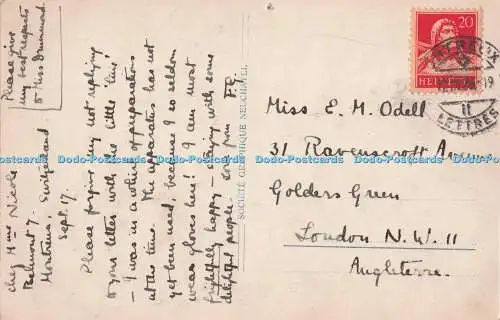 Please give
my best respects
to Miss Drummond.
chez Mme Nicole
Belmont 7.
Montreux, Switzerland
Sept. 17.
Please forgive my not replying
to your letter with the little 'line'
- I was in a whirl of preparations
at the time. The apparatus has not
yet been used, because I so seldom
wear gloves here! I am most
frightfully happy - staying with some
delightful people. Love from P.G.
SOCIÉTÉ GRAPHIQUE NEUCHÂTEL
20
HELVETIA
MONTREUX
LETTRES
Miss E. M. Odell
31 Ravenscroft Av.
Golders Green
London N.W. 11
Angleterre.
Dodo-Postcards Dodo-Postcards Dodo-Postcards Dodo-Postcards Dodo-Postcards